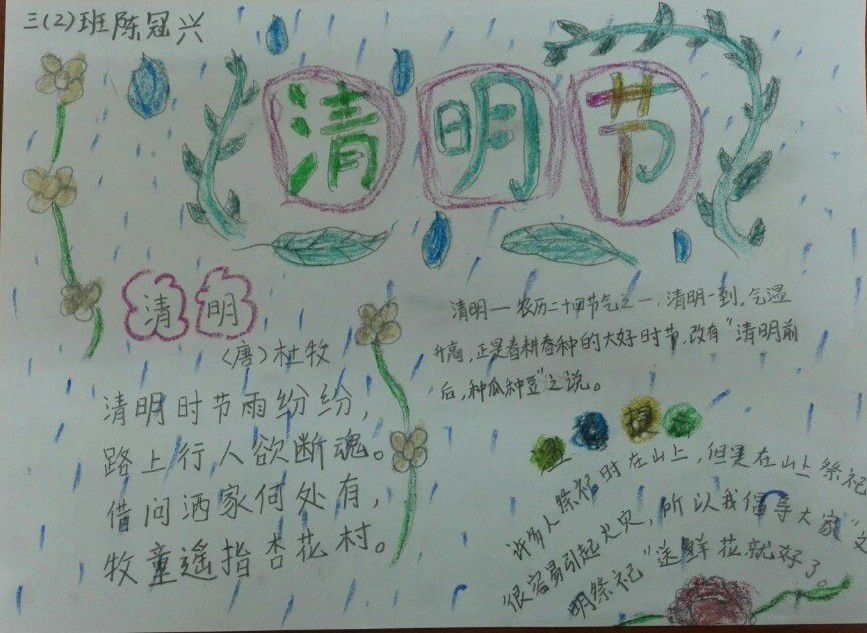 三(2)班陈冠兴
清明节
清明
〈唐〉杜牧
清明时节雨纷纷，
路上行人欲断魂。
借问酒家何处有，
牧童遥指杏花村。
清明一农历二十四节气之一，清明一到。气温
升高，正是春耕春种的大好时节，改有“清明前
后，种瓜种豆”之说。
许多人祭祀时在山上，但是在山上祭祀
很容易引起火灾，所以我倡导大家“文
明祭祀”送鲜花就好了。